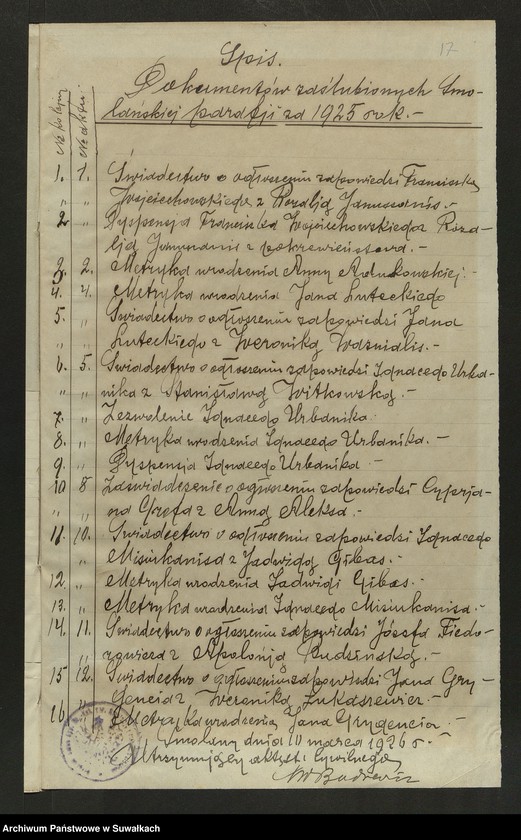 17
Spis.
Dokumentów zaślubionych Smo-
lańskiej parafji za 1925 rok.-
№ aktu.
1. 1. Świadectwo o ogłoszeniu zapowiedzi Franciszka
" " Wojciechowskiego z Rozalją
2 " Dyspensja Franciszka Wojciechowskiego z Roza-
lją z pokrewieństwa.-
3. 2. Metryka urodzenia Anny
4. 4. Metryka urodzenia Jana Luteckiego
5. " Świadectwo o ogłoszeniu zapowiedzi Jana
" " Luteckiego z Weroniką
6. 5. Świadectwo o ogłoszeniu zapowiedzi Ignacego Urba-
" " nika z Stanisławą Witkowską.-
7. " Zezwolenie Ignacego Urbanika
8. " Metryka urodzenia Ignacego Urbanika.-
9. " Dyspensja Ignacego Urbanika.-
10 8 Zaświadczenie o ogłoszeniu zapowiedzi Cyprja-
na z Anną Aleksa.-
11. 10. Świadectwo o ogłoszeniu zapowiedzi Ignacego
" Misiukanisa z Jadwigą Gibas.-
12. " Metryka urodzenia Jadwigi Gibas.-
13. " Metryka urodzenia Ignacego Misiukanisa.-
14. 11. Świadectwo o ogłoszeniu zapowiedzi Józefa Fiedo-
" rowicza z Apolonją Budzińską.-
15 12. Świadectwo o ogłoszeniu zapowiedzi Jana Gry-
" " gencia z Weroniką Łukaszewicz.-
16 " Metryka urodzenia Jana Grygencia.-
Smolany dnia 10 marca 1926 r.-
Utrzymujący akta st. cywilnego
Archiwum Państwowe w Suwałkach